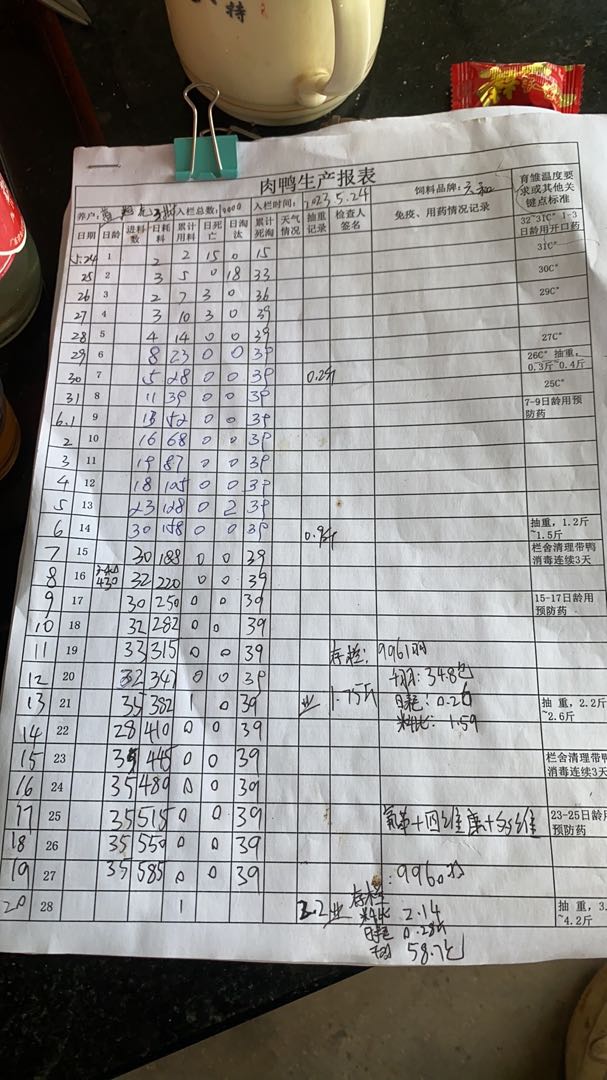 特
肉鸭生产报表
养户: 入栏总数: 10000 入栏时间: 2023.5.24 饲料品牌: 六和 育雏温度要求或其他关键点标准
日期 日龄 进料数 日耗料 累计用料 日死亡 日淘汰 累计死淘 天气情况 抽重记录 检查人签名 免疫、用药情况记录
32~31C° 1-3日龄用开口药
5.24 1 2 2 15 0 15 31C°
25 2 3 5 0 18 33 30C°
26 3 2 7 3 0 36 29C°
27 4 3 10 3 0 39
28 5 4 14 0 0 39 27C°
29 6 8 23 0 0 39 26C° 抽重,0.3斤~0.4斤
30 7 5 28 0 0 39 0.2斤 25C°
31 8 11 39 0 0 39 7-9日龄用预防药
6.1 9 13 52 0 0 39
2 10 16 68 0 0 39
3 11 19 87 0 0 39
4 12 18 105 0 0 39
5 13 23 128 0 2 39
6 14 30 158 0 0 39 0.9斤 抽重,1.2斤~1.5斤
7 15 30 188 0 0 39 栏舍清理带鸭消毒连续3天
8 16 430 32 220 0 0 39
9 17 30 250 0 0 39 15-17日龄用预防药
10 18 32 282 0 0 39
11 19 33 315 0 0 39 存栏: 9961羽
12 20 32 347 0 0 39 34.8包
13 21 35 382 1 0 39 1.75斤 日耗: 0.26 抽重,2.2斤~2.6斤
料肉比: 1.59
14 22 28 410 0 0 39
15 23 35 445 0 0 39 栏舍清理带鸭消毒连续3天
16 24 35 480 0 0 39
17 25 35 515 0 0 39 23-25日龄用预防药
18 26 35 550 0 0 39
19 27 35 585 0 0 39 存栏: 9960羽
20 28 1 2.2 料肉比 2.14 抽重,3.
~4.2斤
日耗 0.28斤
58.7包